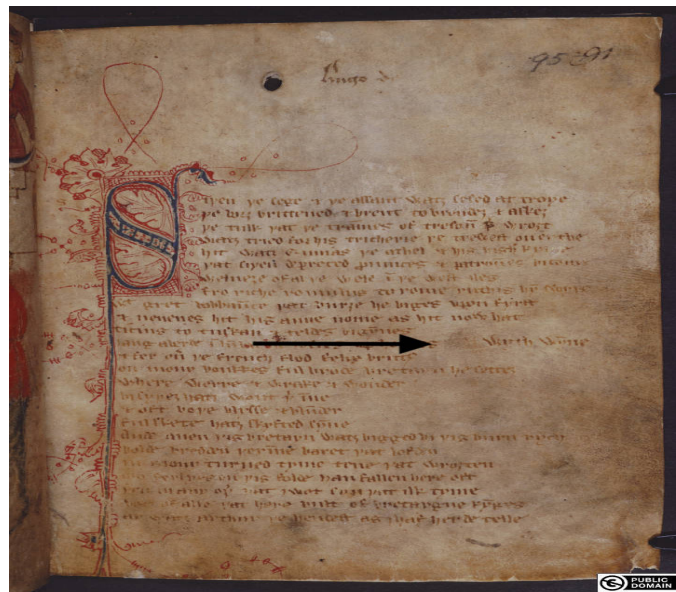 Hugo de
95 91
Siþen þe sege & þe assaut watz sesed at troye
þe borȝ brittened & brent to brondez & askez
þe tulk þat þe trammes of tresoun þer wroȝt
watz tried for his tricherie þe trewest on erthe
hit watz ennias þe athel & his highe kynde
þat siþen depreced prouinces & patrounes bicome
welneȝe of al þe wele in þe west iles
fro riche romulus to rome ricchis hym swyþe
gret bobbaunce þat burȝe he biges vpon fyrst
& neuenes hit his aune nome as hit now hat
ticius to tuskan & teldes bigynnes
wyth wynne
& fer ouer þe french flod felix brutus
on mony bonkkes ful brode bretayn he settez
where werre & wrake & wonder
bi syþez hatz wont þerinne
& oft boþe blysse & blunder
ful skete hatz skyfted synne
Ande quen þis bretayn watz bigged bi þis burn rych
bolde bredden þerinne baret þat lofden
in mony turned tyme tene þat wroȝten
mo ferlyes on þis folde han fallen here oft
þen in any oþer þat I wot syn þat ilk tyme
bot of alle þat here bult of bretaygne kynges
ay watz arthur þe hendest as I haf herde telle
PUBLIC DOMAIN